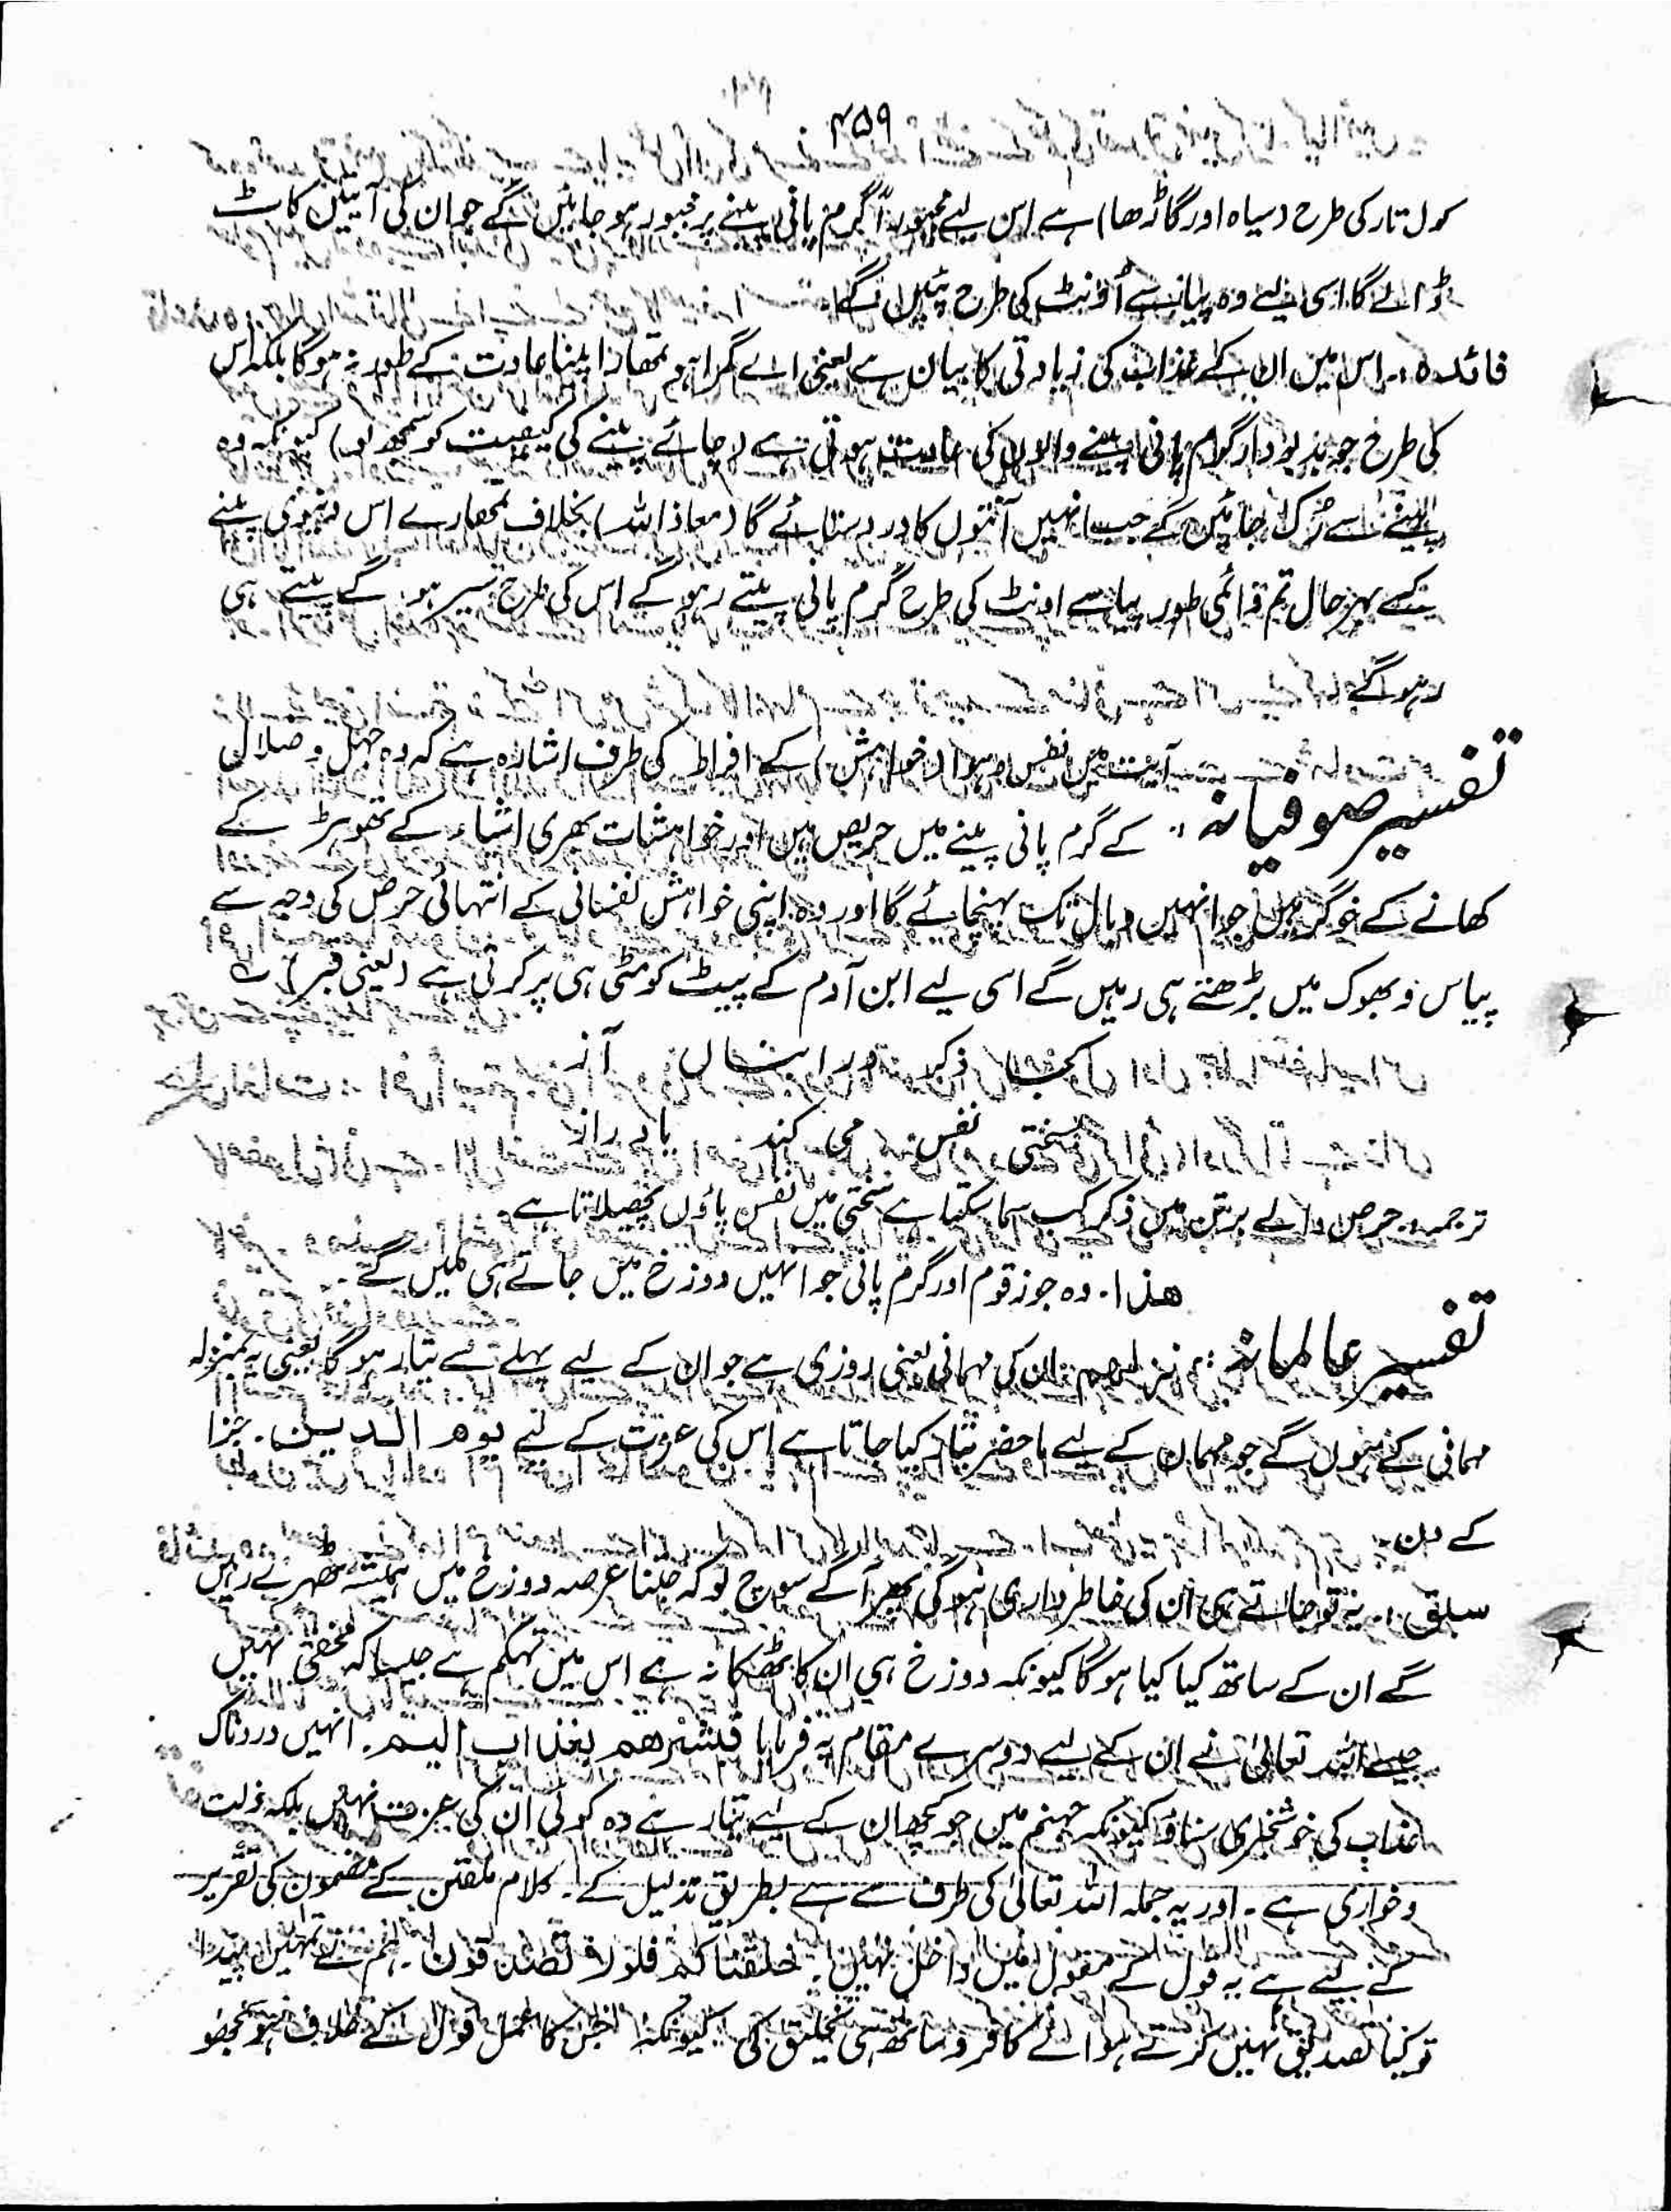 ۴۵۹
کول تار کی طرح (سیاہ اور گاڑھا) ہے اس لیے مجبوراً گرم پانی پینے پر مجبور ہو جائیں گے جو ان کی آنتیں کاٹ
ڈالے گا اسی لیے وہ پیاسے اُونٹ کی طرح پئیں گے۔
فائدہ :۔ اس میں ان کے عذاب کی زیادتی کا بیان ہے یعنی اے گمراہو تمھارا پینا عادت کے طور نہ ہوگا بلکہ اس
کی طرح جو بدبودار گرم پانی پینے والوں کی عادت ہوتی ہے (چائے پینے کی کیفیت کو سمجھ لو) کیونکہ وہ
پینے سے رُک جائیں گے جب انہیں آنتوں کا درد ستائے گا (معاذ اللہ) بخلاف تمھارے اس دنیوی پینے
کے بہرحال تم دائمی طور پیاسے اونٹ کی طرح گرم پانی پیتے رہو گے اس کی طرح سیر ہو گے پیتے ہی
رہو گے
تفسیر صوفیانہ :۔ آیت میں نفس و ہوا (خواہش) کے افراط کی طرف اشارہ ہے کہ وہ جہل و ضلال
کے گرم پانی پینے میں حریص ہیں اور خواہشات بھری اشاء کے تھوہڑ کے
کھانے کے خوگر ہیں جو انہیں وبال تک پہنچائے گا اور وہ اپنی خواہش نفسانی کے انتہائی حرص کی وجہ سے
پیاس و بھوک میں بڑھتے ہی رہیں گے اسی لیے ابن آدم کے پیٹ کو مٹی ہی پر کرتی ہے (یعنی قبر) ؎
کجا ذکر در انبان آز
بسختی نفس می کند پا دراز
ترجمہ :۔ حرص والے برتن میں ذکر کب سما سکتا ہے سختی میں نفس پاؤں پھیلاتا ہے۔
تفسیر عالمانہ :۔ ھذا۔ وہ جو زقوم اور گرم پانی جو انہیں دوزخ میں جاتے ہی ملیں گے۔
نزلھم ان کی مہمانی یعنی روزی ہے جو ان کے لیے پہلے سے تیار ہوگا یعنی یہ بمنزلہ
مہمانی کے ہوں گے جو مہمان کے لیے ماحضر تیار کیا جاتا ہے اس کی عزوت کے لیے یوم الدین۔ جزا
کے دن
سبق :۔ یہ تو جاتے ہی ان کی خاطر داری ہو گی پھر آگے سوچ لو کہ جتنا عرصہ دوزخ میں ہمیشہ ٹھہرے رہیں
گے ان کے ساتھ کیا کیا ہوگا کیونکہ دوزخ ہی ان کا ٹھکانہ ہے اس میں تہکم ہے جیسا کہ مخفی نہیں
جیسے اللہ تعالیٰ نے ان کے لیے دوسرے مقام پہ فرمایا فبشرھم بعذاب الیم۔ انہیں دردناک
عذاب کی خوشخبری سناؤ کیونکہ جہنم میں جو کچھ ان کے لیے تیار ہے وہ کوئی ان کی عزت نہیں بلکہ ذلت
و خواری ہے۔ اور یہ جملہ اللہ تعالیٰ کی طرف سے ہے بطریق تذلیل کے۔ کلام ملقن کے مضمون کی تقریر
کے لیے ہے یہ قول کے مقول میں داخل نہیں۔ خلقناکم فلولا تصدقون۔ ہم نے تمہیں پیدا
تو کیا تصدیق نہیں کرتے ہو اے کافرو ساتھ تخلیق کی کیونکہ جس کا عمل قول کے خلاف ہو سمجھو